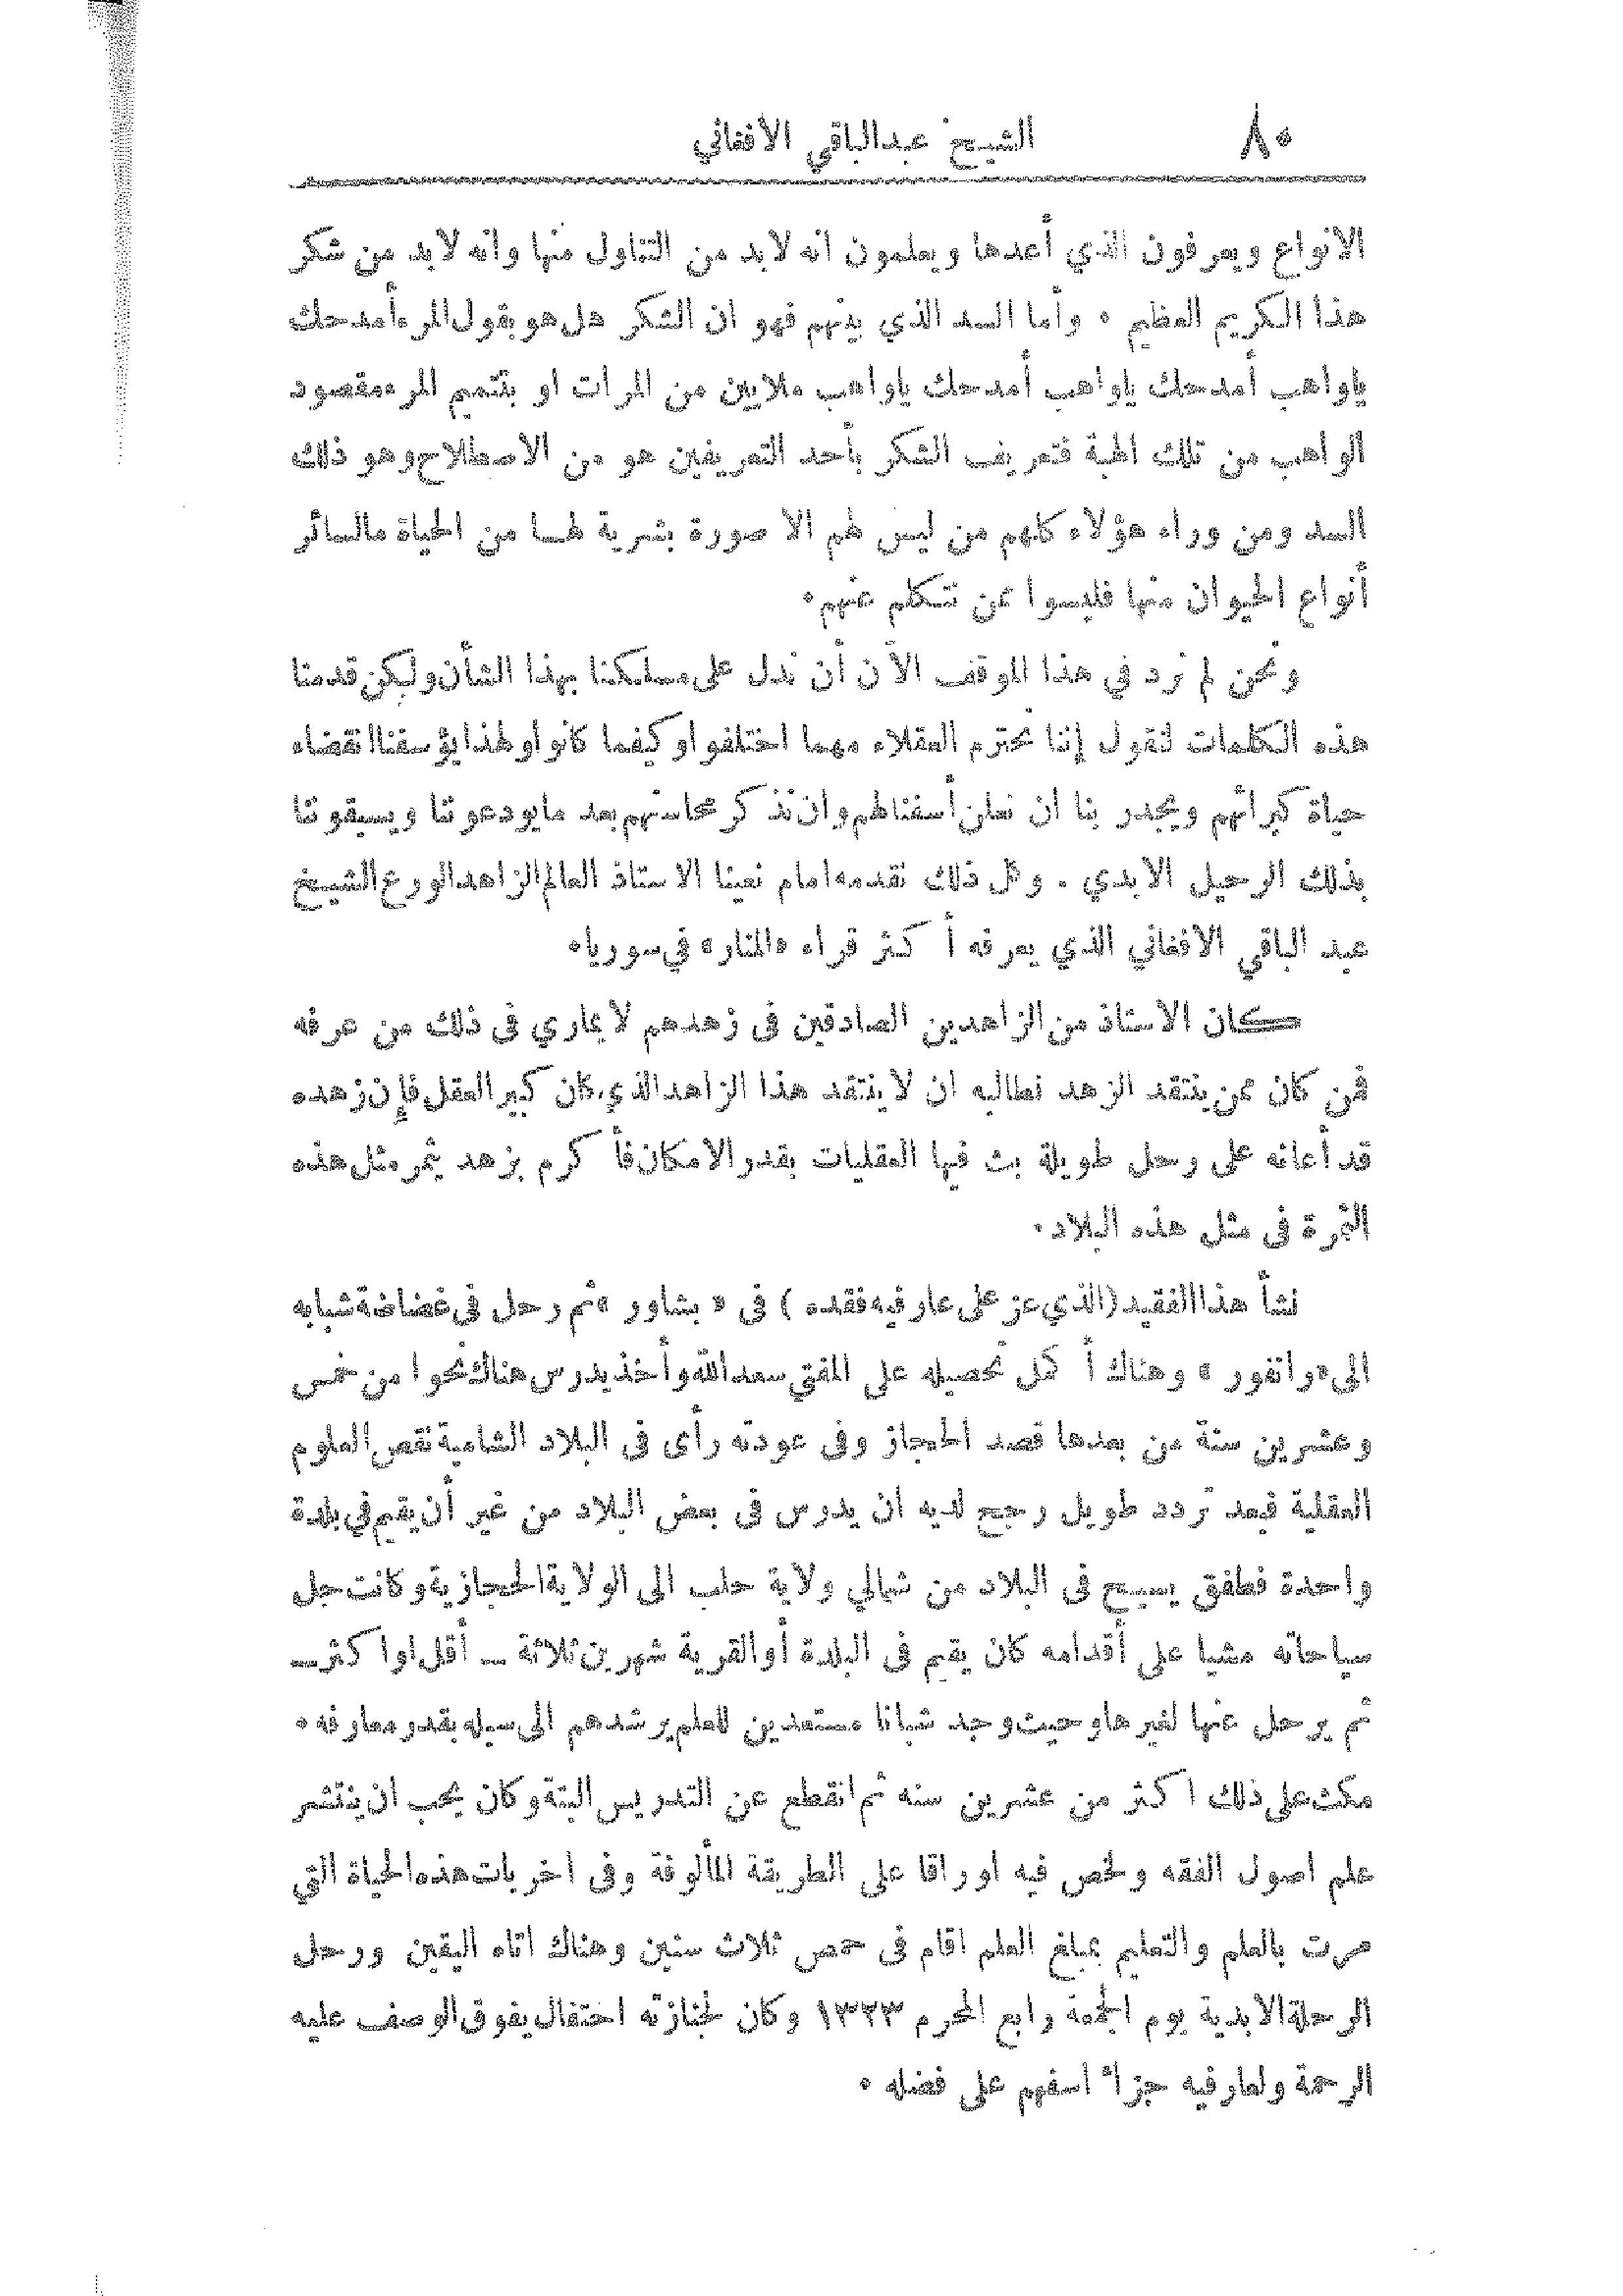 ٨٠
الشيخ عبدالباقي الافغاني
الانواع ويعرفون الذي أعدها ويعلمون انه لا بد من التناول منها وانه لا بد من شكر
هذا الكريم العظيم . وأما السد الذي بينهم فهو ان الشكر هل هو بقول المرء أمدحك
ياواهب أمدحك ياواهب أمدحك ياواهب ملايين من المرات او بتتميم المرء مقصود
الواهب من تلك الهبة فتعريف الشكر بأحد التعريفين هو من الاصطلاح وهو ذلك
السد ومن وراء هؤلاء كلهم من ليس لهم الا صورة بشرية لها من الحياة مالسائر
أنواع الحيوان منها فليسوا عمن نتكلم عنهم.
ونحن لم نرد في هذا الموقف الآن أن ندل على مسلكنا بهذا الشأن ولكن قدمنا
هذه الكلمات لنقول إننا نحترم العقلاء مهما اختلفوا وكيفما كانوا ولهذا يؤسفنا انقضاء
حياة كبرائهم ويجدر بنا ان نعلن أسفنا لهم وان نذكر محاسنهم بعد مايودعوننا ويسبقوننا
بذلك الرحيل الابدي . وكل ذلك نقدمه امام نعينا الاستاذ العالم الزاهد الورع الشيخ
عبد الباقي الافغاني الذي يعرفه أكثر قراء «المنار» في سوريا.
كان الاستاذ من الزاهدين الصادقين فى زهدهم لا يماري فى ذلك من عرفه
فمن كان ممن ينتقد الزهد نطالبه ان لا ينتقد هذا الزاهد الذي كان كبير العقل فإن زهده
قد أعانه على رحل طويلة بث فيها العقليات بقدر الامكان فأكرم بزهد يثمر مثل هذه
الثمرة فى مثل هذه البلاد.
نشأ هذا الفقيد (الذي عز على عارفيه فقده ) فى « بشاور » ثم رحل فى غضاضة شبابه
الى «رانفور » وهناك أكمل تحصيله على المفتي سعد الله وأخذ يدرس هناك نحوا من خمس
وعشرين سنة من بعدها قصد الحجاز وفى عودته رأى فى البلاد الشامية نقص العلوم
العقلية فبعد تردد طويل رجح لديه ان يدرس فى بعض البلاد من غير أن يقيم في بلدة
واحدة فطفق يسيح فى البلاد من شمالي ولاية حلب الى الولاية الحجازية وكانت جل
سياحاته مشيا على أقدامه كان يقيم فى البلدة أو القرية شهرين ثلاثة ــ أقل او اكثر ــ
ثم يرحل عنها لغيرها وحيث وجد شبانا مستعدين للعلم يرشدهم الى سبيله بقدر معارفه .
مكث على ذلك اكثر من عشرين سنه ثم انقطع عن التدريس البتة وكان يحب ان ينتشر
علم اصول الفقه ولخص فيه اوراقا على الطريقة المألوفة وفى اخريات هذه الحياة التي
مرت بالعلم والتعليم بمبلغ العلم اقام فى حمص ثلاث سنين وهناك اتاه اليقين ورحل
الرحلة الابدية يوم الجمعة رابع المحرم ١٣٢٣ وكان لجنازته احتفال يفوق الوصف عليه
الرحمة ولعارفيه جزاء اسفهم على فضله .